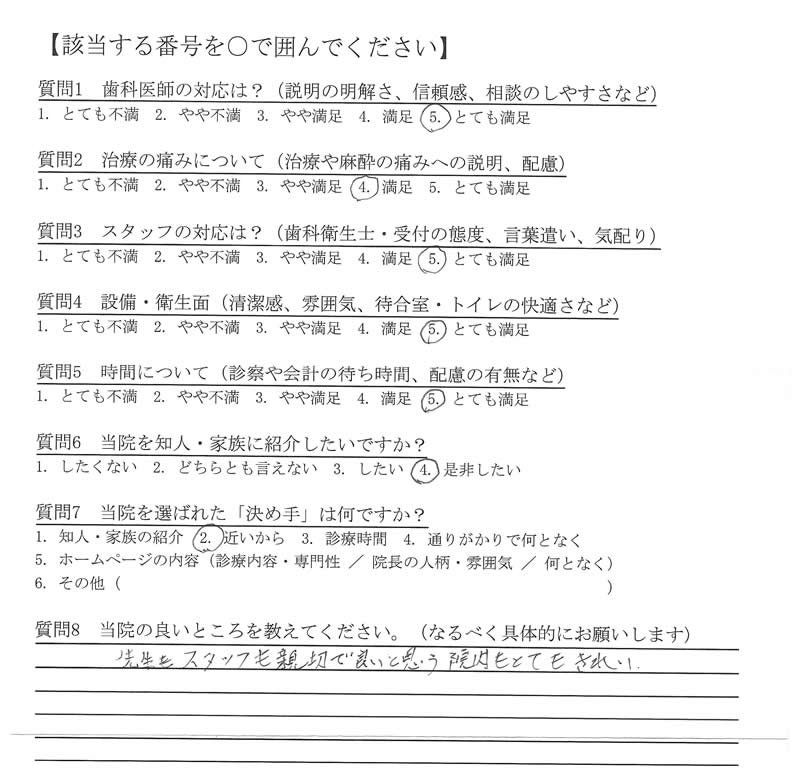 【該当する番号を〇で囲んでください】
質問1 歯科医師の対応は？（説明の明解さ、信頼感、相談のしやすさなど）
1. とても不満 2. やや不満 3. やや満足 4. 満足 5. とても満足
質問2 治療の痛みについて（治療や麻酔の痛みへの説明、配慮）
1. とても不満 2. やや不満 3. やや満足 4. 満足 5. とても満足
質問3 スタッフの対応は？（歯科衛生士・受付の態度、言葉遣い、気配り）
1. とても不満 2. やや不満 3. やや満足 4. 満足 5. とても満足
質問4 設備・衛生面（清潔感、雰囲気、待合室・トイレの快適さなど）
1. とても不満 2. やや不満 3. やや満足 4. 満足 5. とても満足
質問5 時間について（診察や会計の待ち時間、配慮の有無など）
1. とても不満 2. やや不満 3. やや満足 4. 満足 5. とても満足
質問6 当院を知人・家族に紹介したいですか？
1. したくない 2. どちらとも言えない 3. したい 4. 是非したい
質問7 当院を選ばれた「決め手」は何ですか？
1. 知人・家族の紹介 2. 近いから 3. 診療時間 4. 通りがかりで何となく
5. ホームページの内容（診療内容・専門性 ／ 院長の人柄・雰囲気 ／ 何となく）
6. その他（ ）
質問8 当院の良いところを教えてください。（なるべく具体的にお願いします）
先生も スタッフも親切で良いと思う 院内もとても きれい.